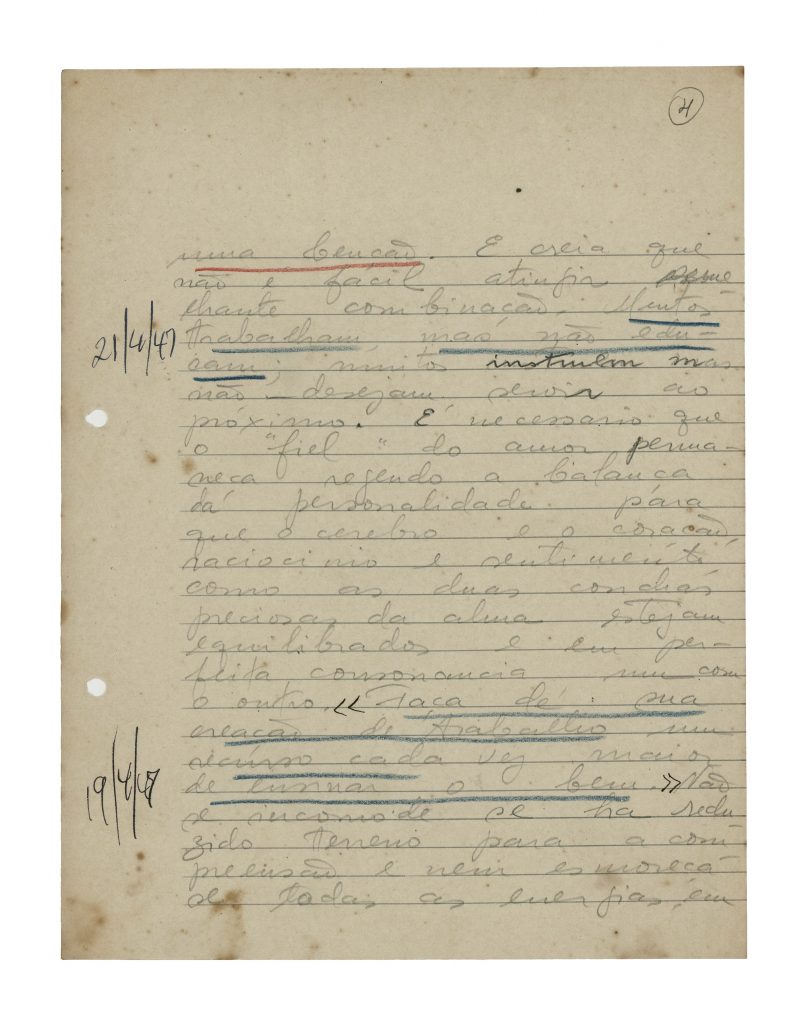 4
uma benção. E creia que
não é facil atingir seme
lhante combinação. Muitos
21/4/47
trabalham mas não edu-
cam; muitos instruem mas
não desejam servir ao
próximo. É necessario que
o "fiel" do amor perma-
neça regendo a balança
da personalidade para
que o cerebro e o coração,
raciocinio e sentimento
como as duas conchas
preciosas da alma estejam
equilibrados e em per-
feita consonancia um com
o outro. « Faça de sua
creação de trabalho um
recurso cada vez maior
19/4/47
de ensinar o bem. » Não
se incomode se ha redu-
zido terreno para a com-
preensão e nem esmoreça
se todas as energias em